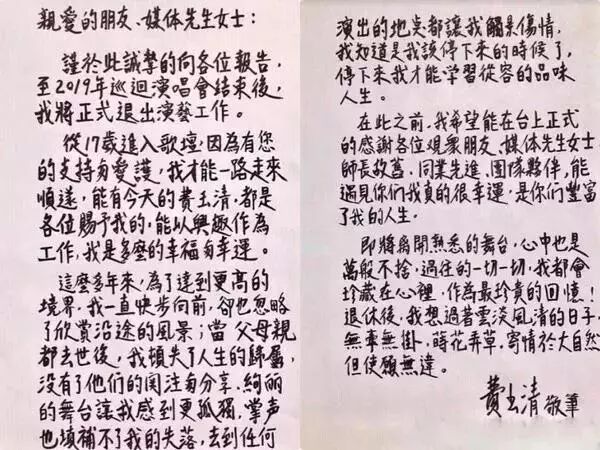 親愛的朋友、媒体先生女士：
謹於此誠摯的向各位報告，
至2019年巡迴演唱會結束後，
我將正式退出演藝工作。
從17歲進入歌壇，因為有您
的支持與愛護，我才能一路走來
順遂，能有今天的費玉清，都是
各位賜予我的，能以興趣作為
工作，我是多麼的幸福與幸運。
這麼多年來，為了達到更高的
境界，我一直快步向前，卻也忽略
了欣賞沿途的風景；當父母親
都去世後，我頓失了人生的歸屬，
沒有了他們的関注與分享，絢麗
的舞台讓我感到更孤獨，掌声
也填補不了我的失落，去到任何
演出的地點都讓我觸景傷情，
我知道是我該停下來的時候了，
停下來我才能學習從容的品味
人生。
在此之前，我希望能在台上正式
的感謝各位觀衆朋友、媒体先生女士、
師長故舊、同業先進、團隊夥伴，能
遇見你们我真的很幸運，是你们豐富
了我的人生。
即將離開熟悉的舞台，心中也是
萬般不捨，過往的一切一切，我都會
珍藏在心裡，作為最珍貴的回憶！
退休後，我想過著雲淡風清的日子，
無牽無掛，蒔花弄草，寄情於大自然
但使願無違。
費玉清 敬筆